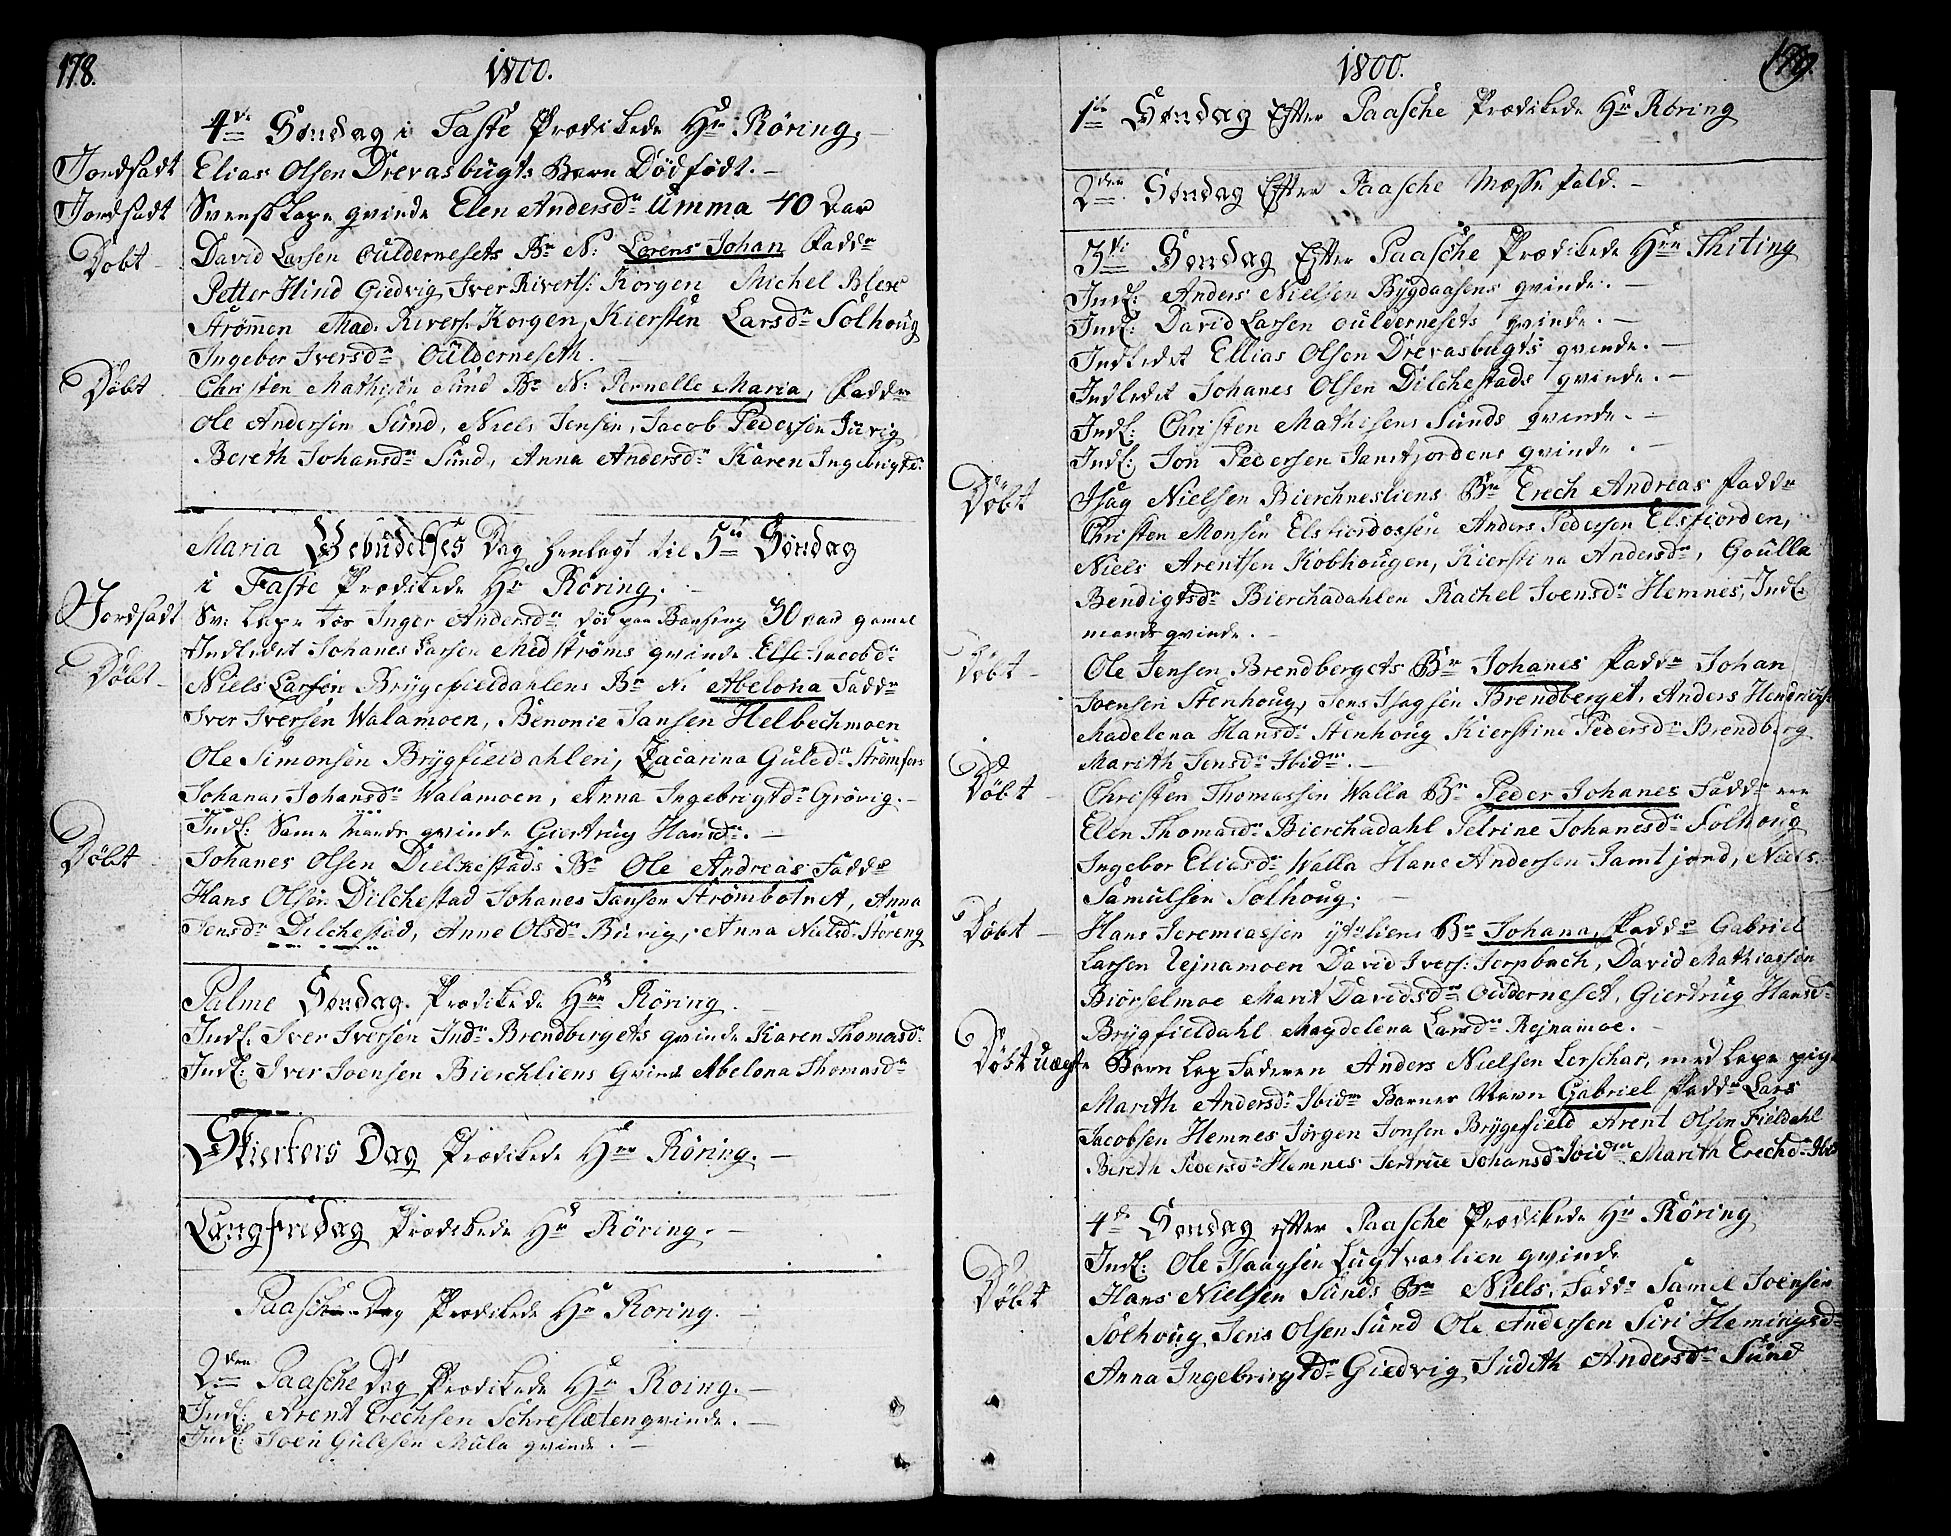 178.
1800.
4de Søndag i Faste Prædikede Hr Röring.
Jordfadt Elias Olsen Drevasbugts Barn Dödfödt.
Jordfadt Svensk Lape qvinde Elen Andersdr Umma 40 Aar
Döbt David Larsen Oulderneset's Br N: Lorens Johan Faddr
Petter Hind Giedvig Iver Riverts: Korgen Michel Blese
Strømen Mad. Rivers. Korgen, Kiersten Larsdr Solhoug
Ingebor Iversdr Oulderneseth.
Döbt Christen Mathisen Sund Br N: Pernelle Maria, Faddr
Ole Andersen Sund, Niels Jensen, Jacob Pedersen Juvig
Bereth Johansdr Sund, Anna Andersdr Karen Ingebrigtdr
Maria Bebudelses Dag henlagt til 5te Søndag
i Faste Prædikede Hr Röring.
Jordfadt Sv: Lape Inger Andersdr død paa 30 aar gamel
Indledet Johanes Larsen Medströms qvinde Else Jacobdr
Döbt Niels Larsen Brygefieldahlens Br N: Abelona Faddr
Iver Iversen Walamoen, Benonie Jansen Helbechmoen
Ole Simonsen Brygfieldahlen, Zacarina Guledr Strømfors
Johana Johansdr Walamoen, Anna Ingebrigtdr Grövig.
Indl: Same Mands qvinde Giertrug Hansdr.
Döbt Johanes Olsen Dielkestads Br Ole Andreas Faddr
Hans Olsen Dilchestad Johanes Jansen Strømbotnet, Anna
Jensdr Dilchestad, Anne Olsdr Buvig, Anna Nielsdr Storeng
Palme Søndag. Prædikede Hrr Röring.
Indl: Iver Iversen Indr Brendbergets qvinde Karen Thomasdr
Indl: Iver Joensen Bierchliens Qvind Abelona Thomasdr
Skiertors Dag Prædikede Hrr Röring.
Langfredag Prædikede Hr Röring.
Paasche Dag Prædikede Hr Röring.
2den Paasche Dag Prædikede Hr Roing.
Indl: Arent Erechsen Schresleten qvinde.
Indl: Joen Gulesen Mula qvinde.
1800.
179.
1te Søndag Efter Paasche Prædikede Hr Röring
2den Søndag Efter Paasche Messe fald.
3die Søndag Efter Paasche Prædikede Hrr Thiting
Indl: Anders Nielsen Bygdaasens qvinde.
Indl: David Larsen Oulderneset's qvinde.
Indledet Ellias Olsen Drevasbugts qvinde.
Indledet Johanes Olsen Dilchestads qvinde.
Indl: Christen Mathisens Sunds qvinde.
Indl: Jon Pedersen Jamtjordens qvinde.
Döbt Isag Nielsen Bierchnesliens Br Erech Andreas Faddr
Christen Monsen Elsfiordossen Anders Pedersen Elsfiorden,
Niels Arentsen Kobhougen, Kierstina Andersdr, Goulla
Bendigtsdr Bierchadahlen Rachel Joensdr Hemnes, Indl:
mands qvinde.
Döbt Ole Jensen Brendbergets Br Johanes Faddr Johan
Joensen Stenhoug, Jens Isagsen Brendberget, Anders Hendrichs
Madelena Hansdr Stenhoug Kierstine Pedersdr Brendberg
Marith Jensdr Ibidm.
Döbt Christen Thomassen Walla Br Peder Johanes Faddr
Elen Thomasdr Bierchadahl Petrine Johanesdr Solhoug
Ingebor Eliasdr Walla Hans Andersen Jamtjord, Niels
Samulsen Solhoug.
Döbt Hans Jeremiassen Br Johana, Faddr Gabriel
Larsen Rejnamoen David Ivers: Forpbach, David Mathiassen
Biörselmoe Marit Davidsdr Oulderneset, Giertrug Hansdr
Brygfieldahl Magdelena Larsdr Rejnamoe.
Döbt Uægte Barn Lap Faderen Anders Nielsen Lerschar, med Lape pige
Marith Andersdr Ibidm Barnes Navn Gabriel Faddr Lars
Jacobsen Hemnes Jörgen Jonsen Brygefield Arent Olsen Fieldahl
Bereth Pedersdr Hemnes Jertrue Johansdr Ibidm Marith Erechdr Ibid
4de Søndag efter Paasche Prædikede Hr Röring
Indl: Ole Isaagsen Lugtvaslien qvinde
Döbt Hans Nielsen Sunds Br Niels, Faddr Samel Joensen
Solhoug Jens Olsen Sund Ole Andersen Siri Hemingsdr
Anna Ingebrigtdr Giedvig Judith Andersdr Sund